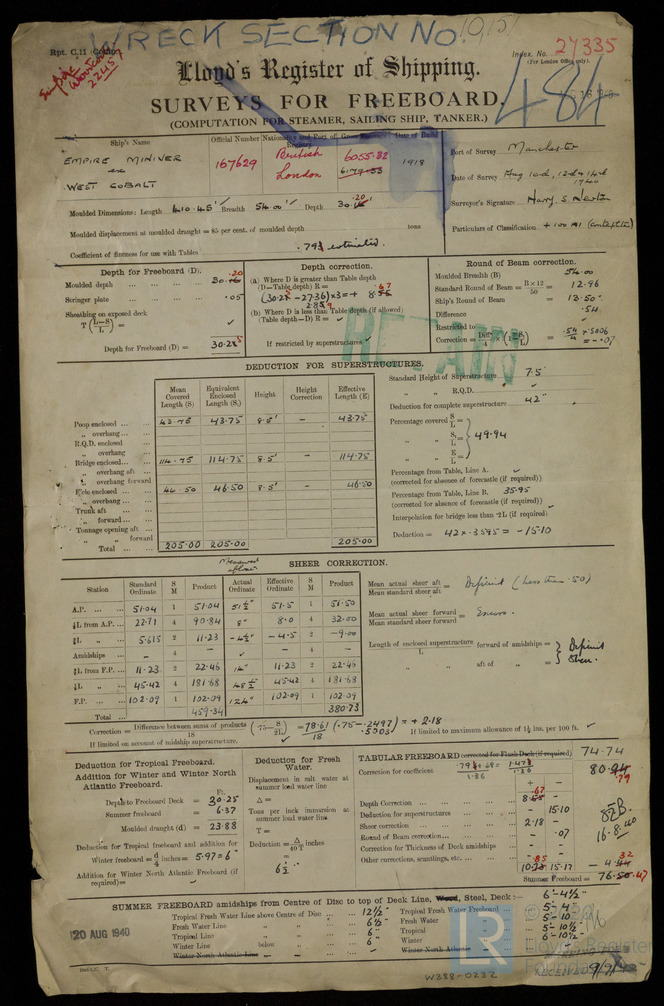 WRECK SECTION No. 10,157
Rpt. C.11
Index. No. 27335
(For London Office only).
Lloyd's Register of Shipping.
484
SURVEYS FOR FREEBOARD.
(COMPUTATION FOR STEAMER, SAILING SHIP, TANKER.)
Ship's Name
Official Number
Nationality and Port of Registry
Gross
Date of Build
Port of Survey Manchester
EMPIRE MINIVER
ex
WEST COBALT
167629
British
London
6055.82
1918
Date of Survey Aug 10th, 12th & 14th 1940
Surveyor's Signature Harry. S. Newton
Moulded Dimensions: Length 410.45' Breadth 54.00' Depth 30.
Particulars of Classification +100 A1
Moulded displacement at moulded draught = 85 per cent. of moulded depth tons
Coefficient of fineness for use with Tables .793 estimated.
Depth for Freeboard (D).
Moulded depth 30.
Stringer plate .05
Sheathing on exposed deck
T (L-S/L) =
Depth for Freeboard (D) = 30.25
Depth correction.
(a) Where D is greater than Table depth
(D—Table depth) R =
(30.25 - 27.36) × 3 = + 8.
(b) Where D is less than Table depth (if allowed)
(Table depth—D) R =
If restricted by superstructures
Round of Beam correction.
Moulded Breadth (B) 54.00
Standard Round of Beam = B×12/50 = 12.96
Ship's Round of Beam = 13.50"
Difference .54
Restricted to
Correction = Diff/4 × (1 - S/L) = .54/4 × .5006 = -.07
RETAIN
DEDUCTION FOR SUPERSTRUCTURES.
Mean Covered Length (S)
Equivalent Enclosed Length (S₁)
Height
Height Correction
Effective Length (E)
Poop enclosed 43.75 43.75 8.5' – 43.75
„ overhang
R.Q.D. enclosed
„ overhang
Bridge enclosed 114.75 114.75 8.5' – 114.75
„ overhang aft
„ overhang forward
F'cle enclosed 46.50 46.50 8.5' – 46.50
„ overhang
Trunk aft
„ forward
Tonnage opening aft
„ „ forward
Total 205.00 205.00 205.00
Standard Height of Superstructure 7.5
„ „ R.Q.D.
Deduction for complete superstructure 42"
Percentage covered S/L =
„ S₁/L = 49.94
„ E/L =
Percentage from Table, Line A.
(corrected for absence of forecastle (if required))
Percentage from Table, Line B. 35.95
(corrected for absence of forecastle (if required))
Interpolation for bridge less than ·2L (if required)
Deduction = 42 × .3595 = -15.10
SHEER CORRECTION.
Station
Standard Ordinate
S M
Product
Actual Ordinate
Effective Ordinate
S M
Product
A.P. 51.04 1 51.04 51½" 51.5 1 51.50
⅙L from A.P. 22.71 4 90.84 8" 8.0 4 32.00
⅓L „ 5.615 2 11.23 -4½" -4.5 2 -9.00
Amidships – 4 – 4 –
⅓L from F.P. 11.23 2 22.46 14" 11.23 2 22.46
⅙L „ 45.42 4 181.68 48½ 45.42 4 181.68
F.P. 102.09 1 102.09 124" 102.09 1 102.09
Total 459.34 380.73
Mean actual sheer aft / Mean standard sheer aft = Deficient (less than .50)
Mean actual sheer forward / Mean standard sheer forward = Excess.
Length of enclosed superstructure / L forward of amidships =
„ „ aft of „ =
Deficient Sheer.
Correction = Difference between sums of products / 18 (·75 - S/2L) = 78.61/18 (.75 - .2497) = + 2.18
.5003
If limited on account of midship superstructure.
If limited to maximum allowance of 1½ ins. per 100 ft.
Deduction for Tropical Freeboard.
Addition for Winter and Winter North Atlantic Freeboard.
Ft.
Depth to Freeboard Deck = 30.25
Summer freeboard = 6.37
Moulded draught (d) = 23.88
Deduction for Tropical freeboard and addition for Winter freeboard = d/4 inches = 5.97 = 6"
Addition for Winter North Atlantic Freeboard (if required) =
Deduction for Fresh Water.
Displacement in salt water at summer load water line
Δ =
Tons per inch immersion at summer load water line
T =
Deduction = Δ/40T inches
=
6½"
TABULAR FREEBOARD corrected for Flush Deck (if required) 74.74
Correction for coefficient .793 + .68 / 1.36 = 1.473 / 1.36
+ –
Depth Correction 8.67
Deduction for superstructures – 15.10
Sheer correction 2.18 –
Round of Beam correction – .07
Correction for Thickness of Deck amidships – –
Other corrections, scantlings, etc. – –
10.85 15.17 - 4.32
Summer Freeboard = 76.47
SUMMER FREEBOARD amidships from Centre of Disc to top of Deck Line, Wood, Steel, Deck:— 6'-4½"
Tropical Fresh Water Line above Centre of Disc 12½"
Fresh Water Line „ „ 6½"
Tropical Line „ „ 6"
Winter Line below „ 6"
Winter North Atlantic Line „ „
Tropical Fresh Water Freeboard 5'-4"
Fresh Water „ 5'-10"
Tropical „ 5'-10½"
Winter „ 6'-10½"
Winter North Atlantic „
20 AUG 1940
W388-0232
RECEIVED
LR
© 2020
Lloyd's Register
Foundation